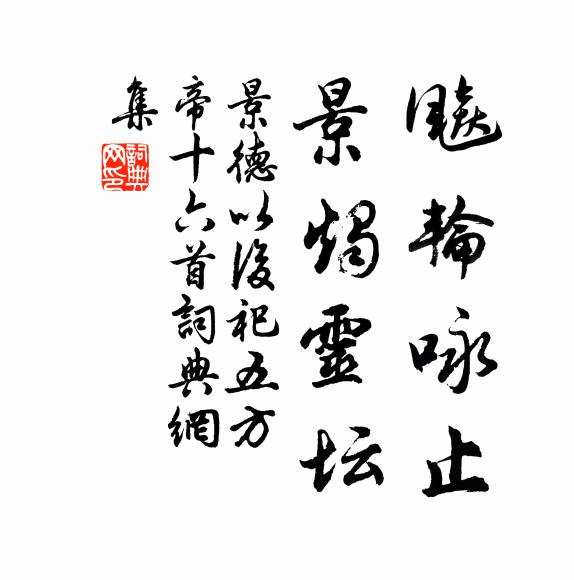 飈輪咏止
景燭靈坛
景德以後祀五方
帝十六首詞典網
集
詞典網印